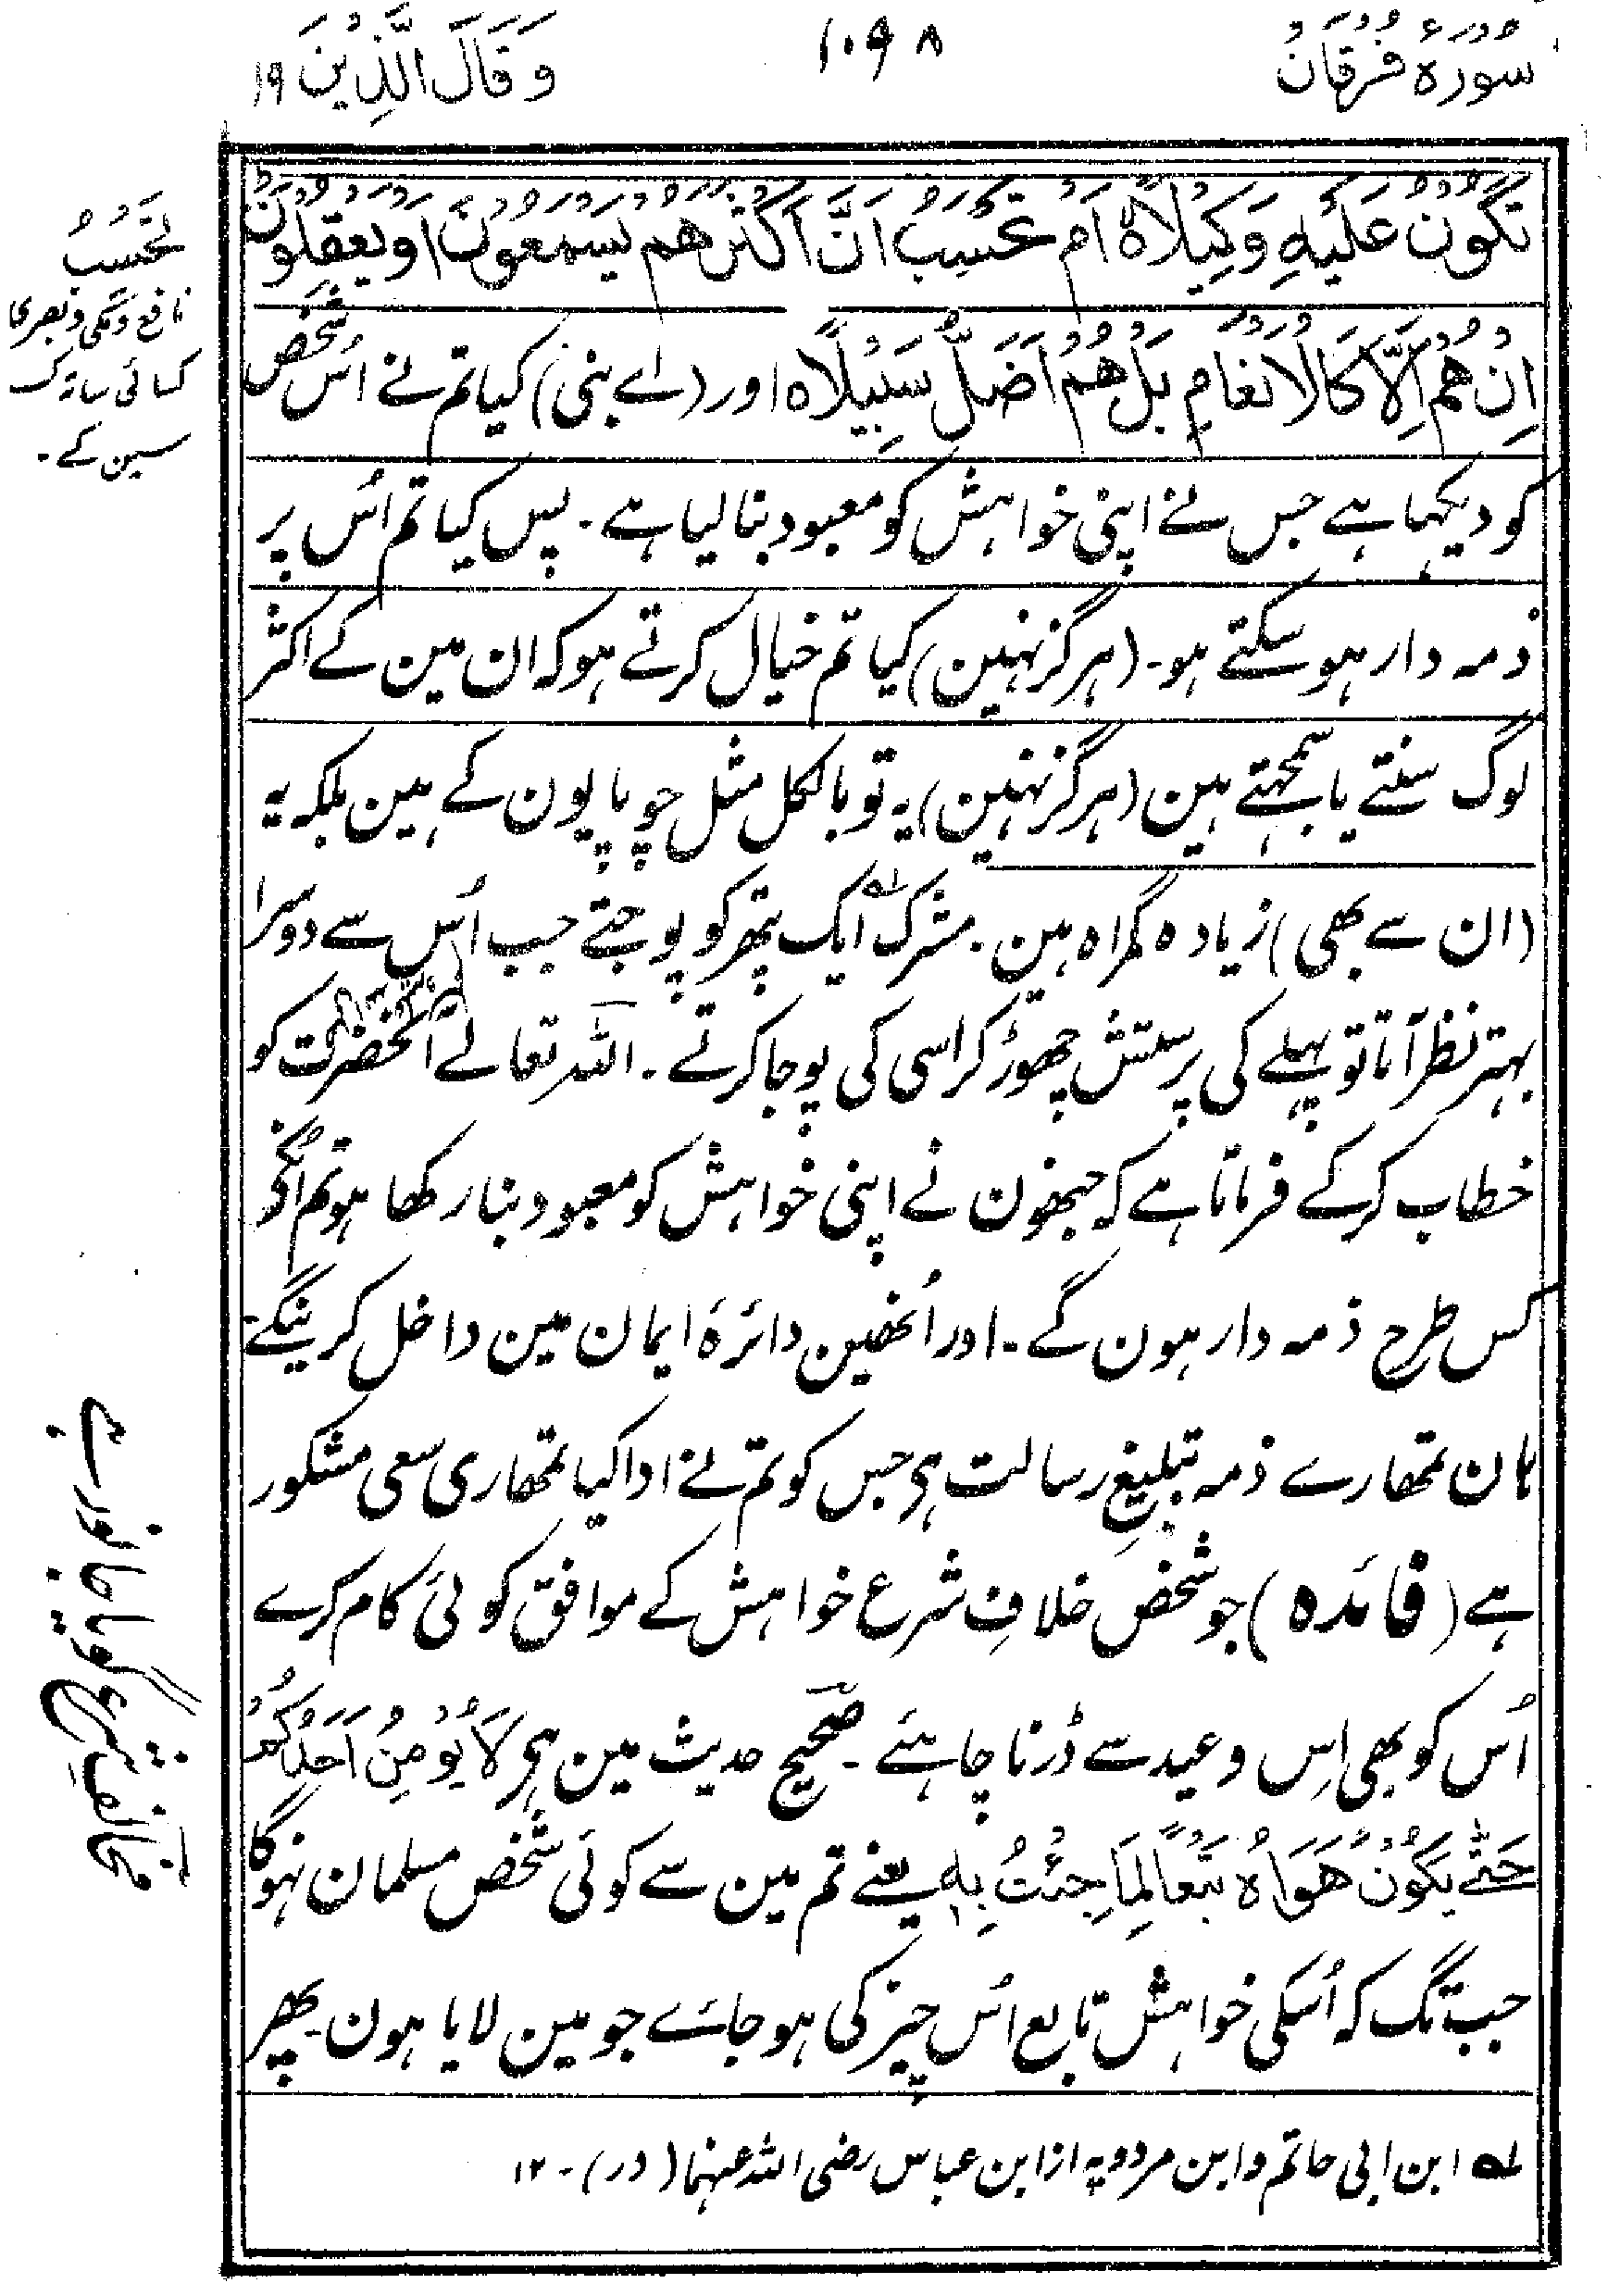 سُوْرَۃُ فُرْقَانُ
۱۰۹۸
وَقَالَ الَّذِيْنَ ۱۹
تَكُوْنُ عَلَيْهِ وَكِيْلًا ہ اَمْ تَحْسَبُ اَنَّ اَكْثَرَهُمْ يَسْمَعُوْنَ اَوْ يَعْقِلُوْنَ
اِنْ هُمْ اِلَّا كَالْاَنْعَامِ بَلْ هُمْ اَضَلُّ سَبِيْلًا ہ اور (اے نبی) کیا تم نے اُس شخص
کو دیکہا ہے جس نے اپنی خواہش کو معبود بنالیا ہے ۔ پس کیا تم اُس پر
ذمہ دار ہو سکتے ہو ۔ (ہرگز نہین) کیا تم خیال کرتے ہو کہ ان مین کے اکثر
لوگ سنتے یا سمجہتے ہین (ہرگز نہین) یہ تو بالکل مثل چوپایون کے ہین بلکہ یہ
(ان سے بھی) زیادہ گمراہ ہین ۔ مشرک ایک پتھر کو پوجتے جب اُس سے دوسرا
بہتر نظر آتا تو پہلے کی پرستش چھوڑ کر اسی کی پوجا کرتے ۔ اللہ تعالے آنحضرت کو
خطاب کرکے فرماتا ہے کہ جنھون نے اپنی خواہش کو معبود بنا رکھا ہو تم انکے
کس طرح ذمہ دار ہون گے ۔ اور اُنھین دائرۂ ایمان مین داخل کرینگے
ہان تمھارے ذمہ تبلیغ رسالت ہی جس کو تم نے ادا کیا تمھاری سعی مشکور
ہے (فائدہ) جو شخص خلافِ شرع خواہش کے موافق کوئی کام کرے
اُس کو بھی اِس وعید سے ڈرنا چاہئے ۔ صحیح حدیث مین ہی لَا يُؤْمِنُ اَحَدُكُمْ
حَتّٰے يَكُوْنَ هَوَاهُ تَبَعًا لِمَا جِئْتُ بِهٖ یعنے تم مین سے کوئی شخص مسلمان نہوگا
جب تک کہ اُسکی خواہش تابع اُس چیز کی ہو جائے جو مین لایا ہون ۔ پھر
لہ ابن ابی حاتم و ابن مردویہ از ابن عباس رضی اللہ عنہما (در) ۔ ۱۲
تَحْسَبُ
نافع و مکی و بصری
کسائی ساتہ کسر
سین کے ۔